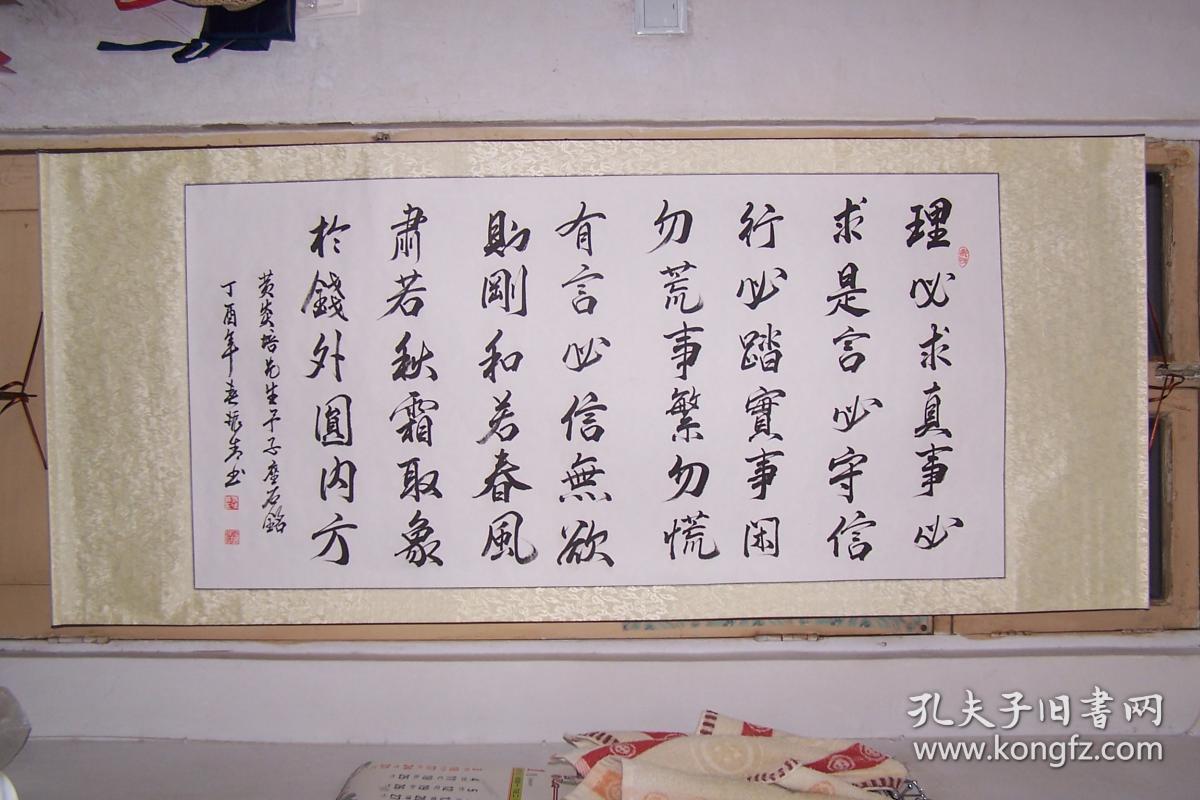 理必求真事必
求是言必守信
行必踏實事閑
勿荒事繁勿慌
有言必信無欲
則剛和若春風
肅若秋霜取象
於錢外圓内方
黄炎培先生予子座右銘
丁酉年春振書
孔夫子旧書网
www.kongfz.com